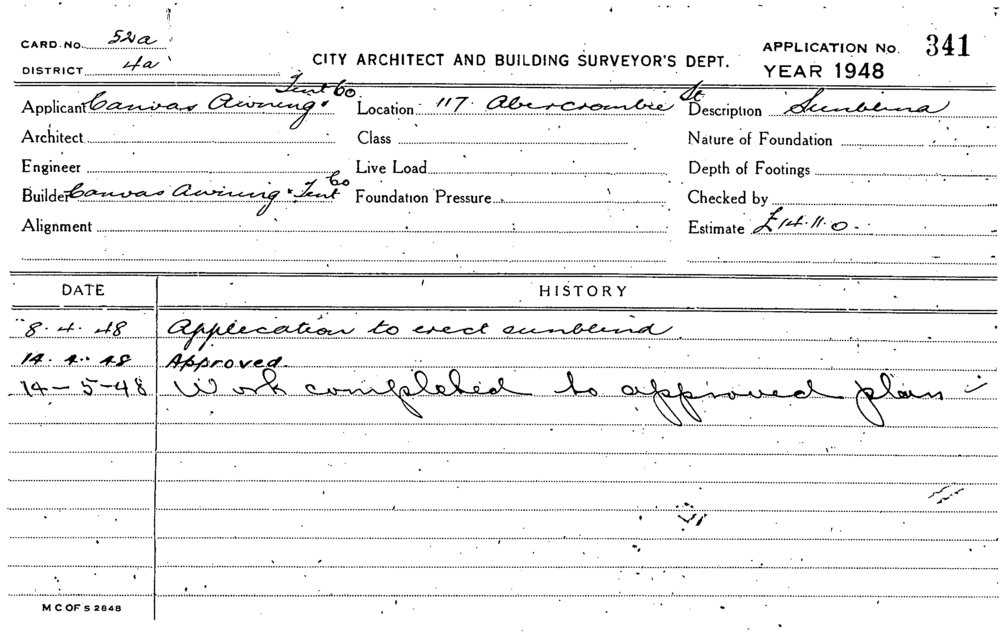 CARD No. 52a
DISTRICT 4a
CITY ARCHITECT AND BUILDING SURVEYOR'S DEPT.
APPLICATION No. 341
YEAR 1948
Applicant Canvas Awning & Tent Co Location 117 Abercrombie St Description Sunblind
Architect Class Nature of Foundation
Engineer Live Load Depth of Footings
Builder Canvas Awning & Tent Co Foundation Pressure Checked by
Alignment Estimate £14.11.0
DATE HISTORY
8.4.48 Application to erect sunblind
14.4.48 Approved.
14-5-48 Work completed to approved plan
M C OF S 2848